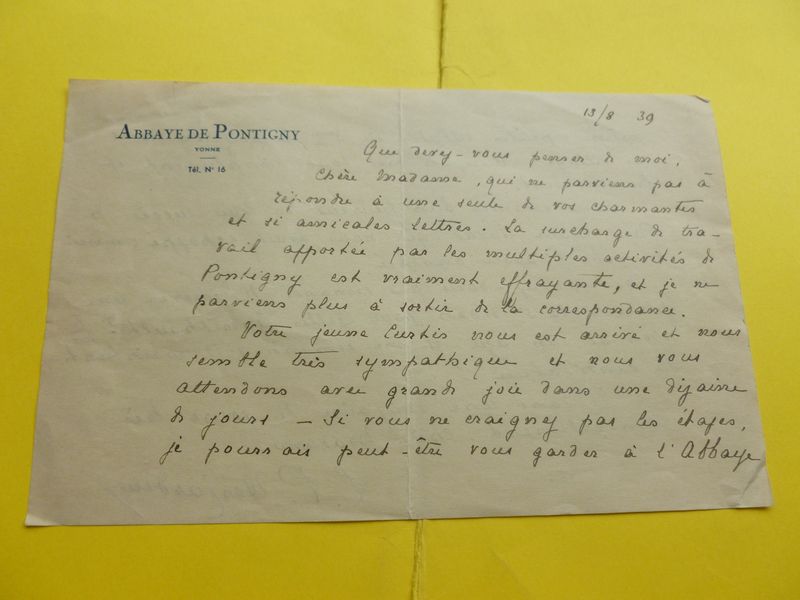 ABBAYE DE PONTIGNY
YONNE
Tél. N° 16
13/8 39
Que devez-vous penser de moi,
chère Madame, qui ne parviens pas à
répondre à une seule de vos charmantes
et si amicales lettres. La surcharge de tra-
vail apportée par les multiples activités de
Pontigny est vraiment effrayante, et je ne
parviens plus à sortir de la correspondance.
Votre jeune Curtis nous est arrivé et nous
semble très sympathique et nous vous
attendons avec grande joie dans une dizaine
de jours — Si vous ne craignez pas les étages,
je pourrais peut-être vous garder à l'Abbaye